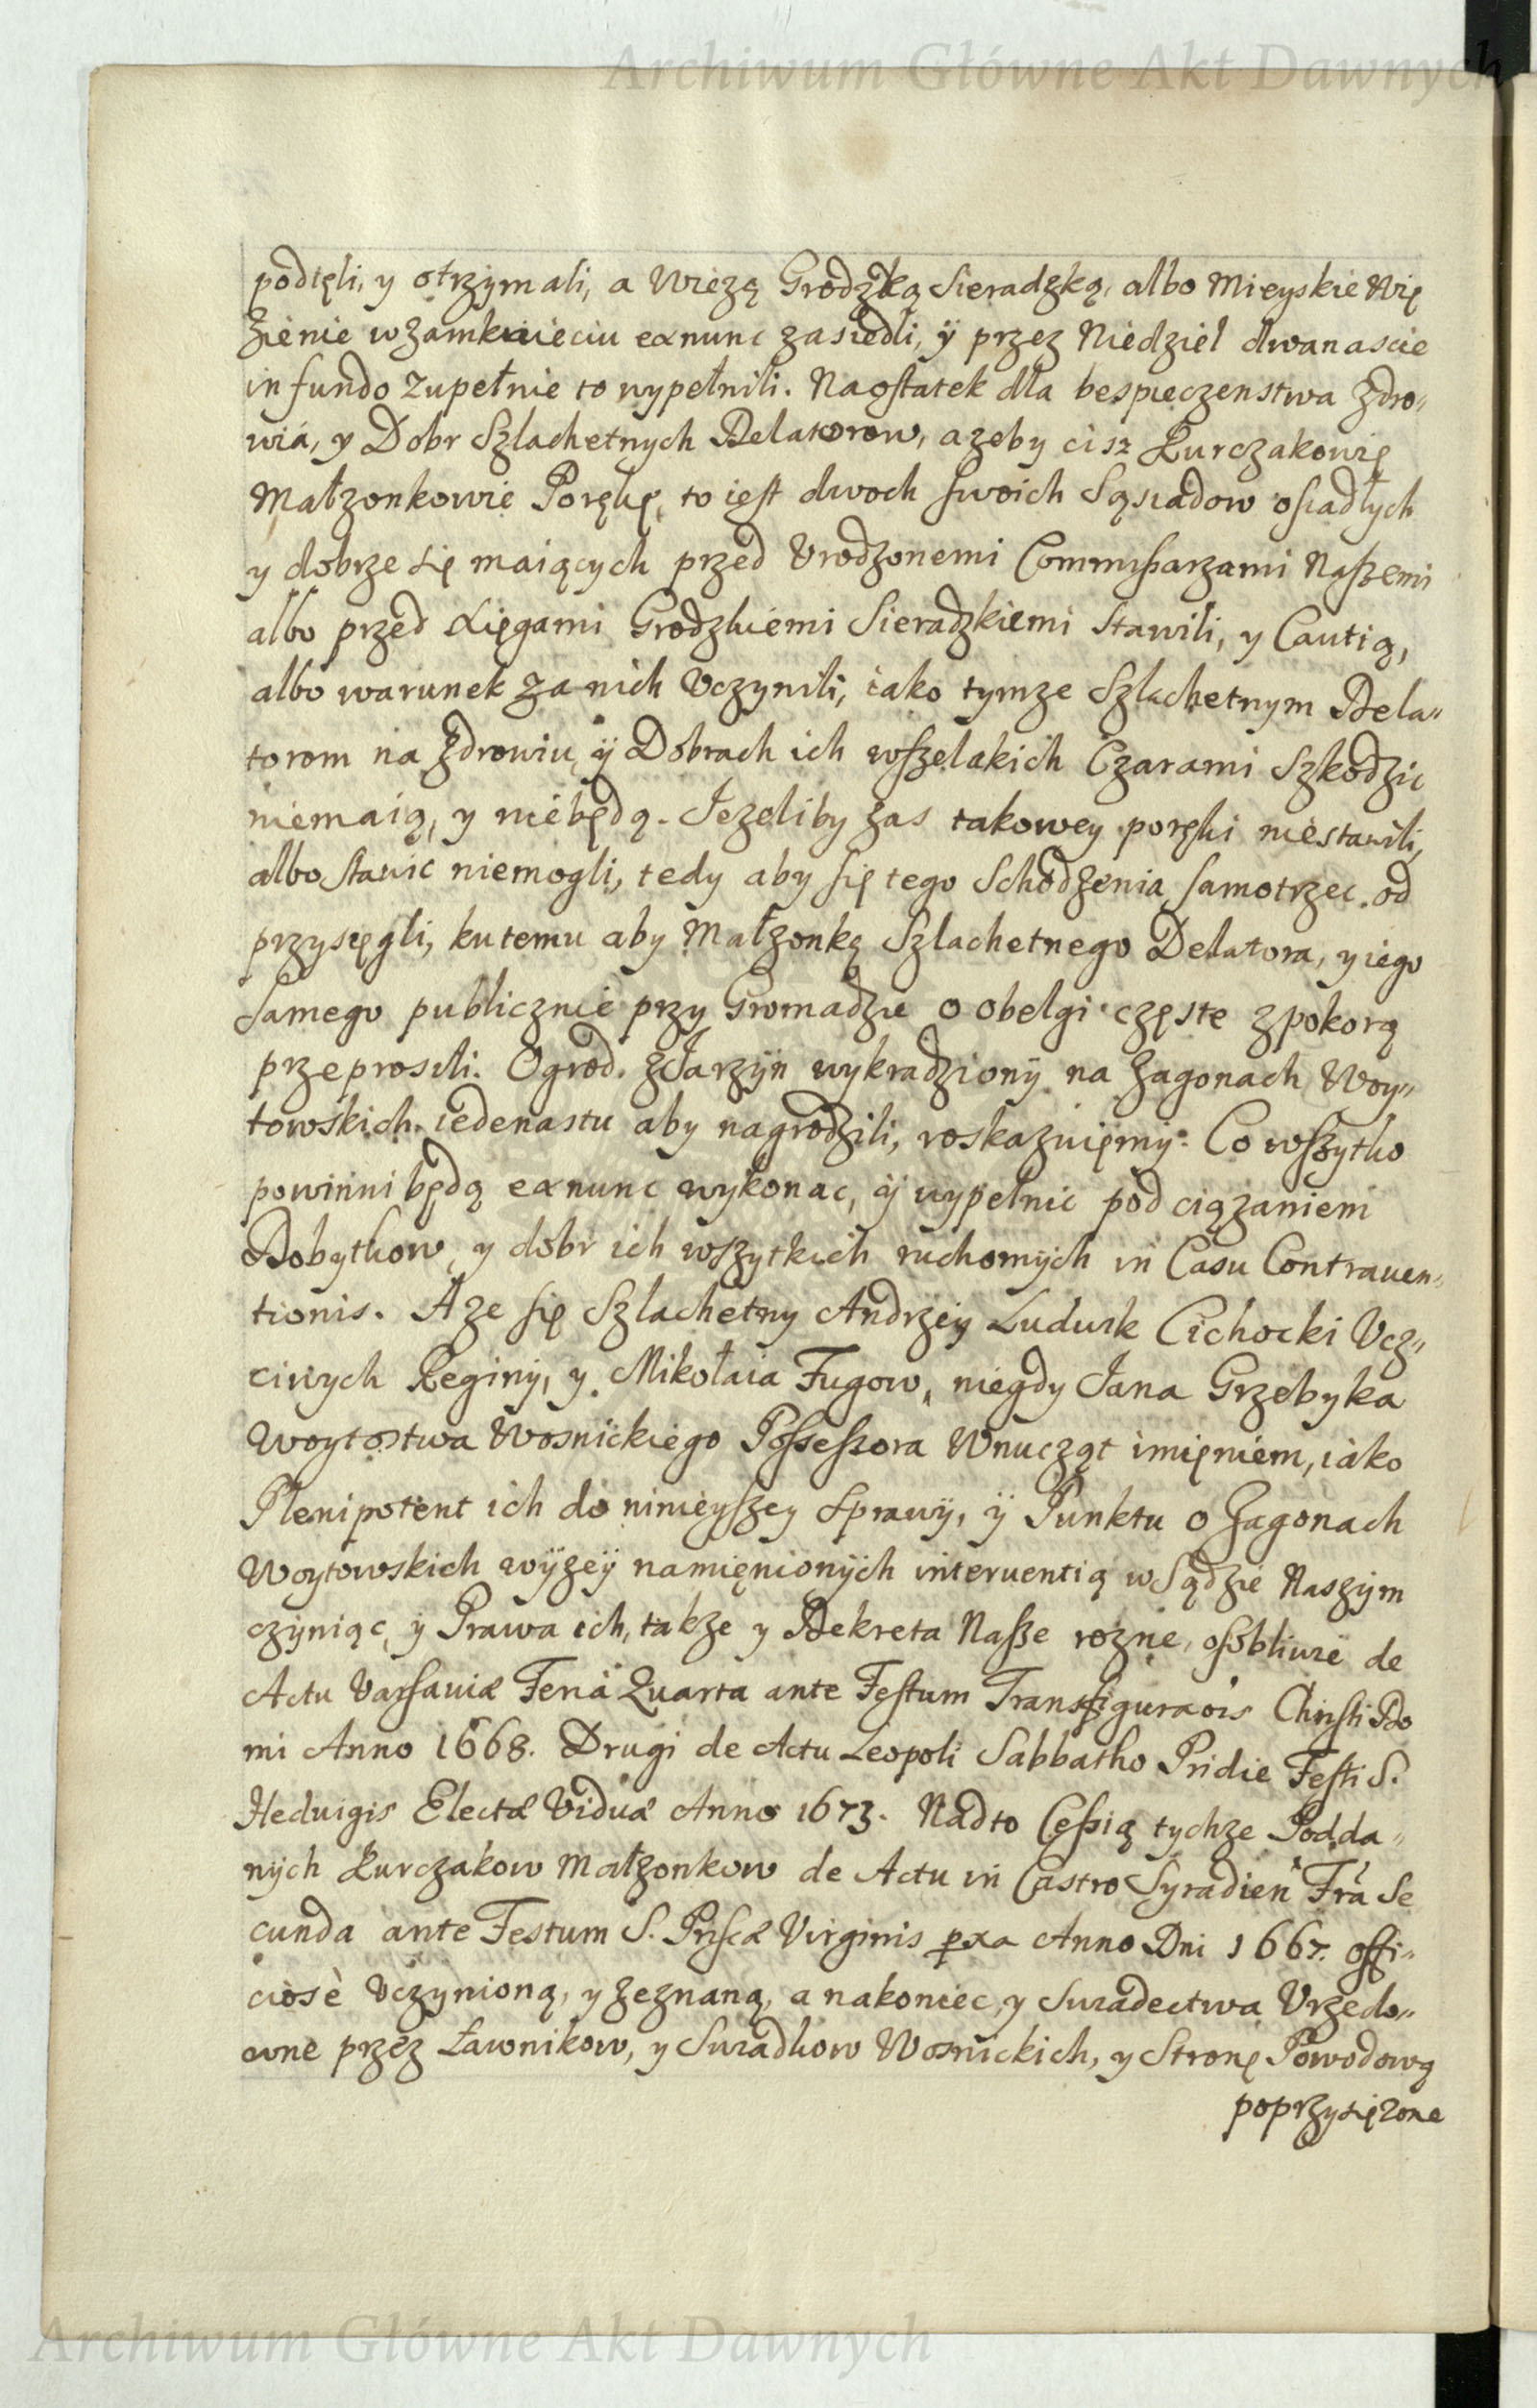 Archiwum Główne Akt Dawnych
podięli, y otrzymali, a Wiezą Grodzką Sieradzką, albo Mieyskie Wię
zienie w zamknieciu exnunc zasiedli, ÿ przez Niedziel dwanascie
in fundo zupełnie to wypełnili. Naostatek dla bespieczenstwa Zdro„
wia, y Dobr Szlachetnych Delatorow, azeby cisz Kurczakowie
Małzonkowie Porękę, to iest dwoch swoich Sąsiadow osiadłych
y dobrze się maiących przed Vrodzonemi Commissarzami Naszemi
albo przed Xięgami Grodzkiemi Sieradzkiemi stawili, y Cautią,
albo warunek za nich Vczynili, iako tymze Szlachetnym Dela„
torom na Zdrowiu, ÿ Dobrach ich wszelakich Czarami Szkodzic
niemaią, y niebędą. Jezeliby zas takowey poręki niestawili,
albo stawic niemogli, tedy aby się tego Schodzenia samotrzec od
przysięgli, kutemu aby Małzonkę Szlachetnego Delatora, y iego
samego publicznie przy Gromadzie o obelgi częste z pokorą
przeprosili. Ogrod z Jarzÿn wykradzionÿ na Zagonach Woy„
towskich iedenastu aby nagrodzili, roskazuięmÿ. Co wszytko
powinni będą exnunc wykonac, ÿ wypełnic pod ciązaniem
Dobytkow, y dobr ich wszytkich ruchomÿch in Casu Contrauen„
tionis. A ze się Szlachetny Andrzeiy Ludwik Cichocki Vcz„
ciwych Reginÿ, y Mikołaia Fugow, niegdy Jana Grzebyka
Woytostwa Wosnickiego Possessora Wnucząt imięniem, iako
Plenipotent ich do ninieyszey sprawÿ, ÿ Punktu o Zagonach
Woytowskich wÿzeÿ namięnionÿch interuentią w Sądzie Naszÿm
czÿniąc, y Prawa ich, takze y Dekreta Nasze rozne, osobliwie de
Actu Varsauiæ Feria Quarta ante Festum Transfiguraõis Christi Do
mi Anno 1668. Drugi de Actu Leopoli Sabbatho Pridie Festi S.
Heduigis Electæ Viduæ Anno 1673. Nadto Cessią tychze Podda„
nÿch Kurczakow Małzonkow de Actu in Castro Syradien Fra Se
cunda ante Festum S. Priscæ Virginis pxa Anno Dni 1667. offi„
ciosè Vczynioną, y zeznaną, a nakoniec, y swiadectwa Vrzędo„
owne przez Ławnikow, y Swiadkow Wosnickich, y Stronę Powodową
poprzysięzone
Archiwum Główne Akt Dawnych